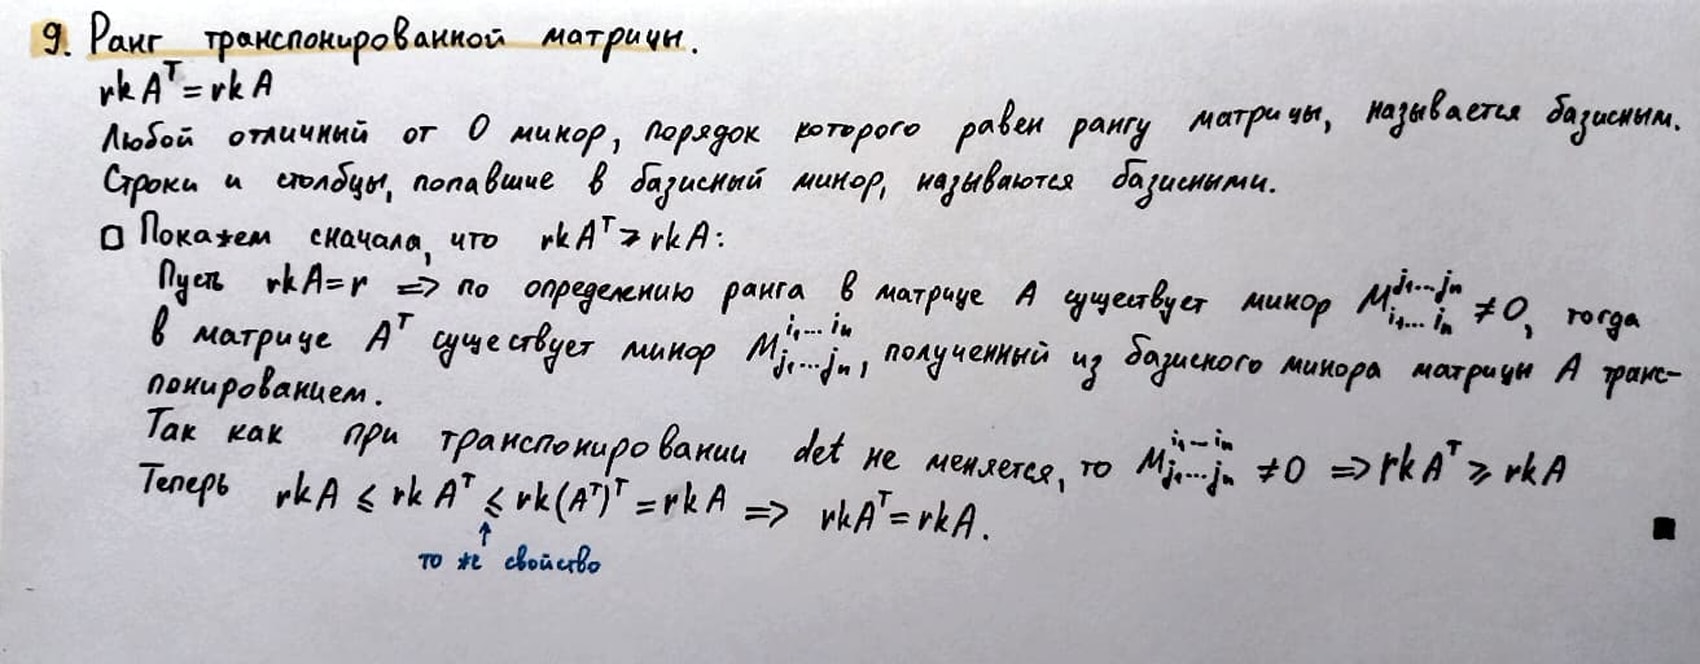 9. Ранг транспонированной матрицы.
rk Aᵀ = rk A
Любой отличный от 0 минор, порядок которого равен рангу матрицы, называется базисным.
Строки и столбцы, попавшие в базисный минор, называются базисными.
□ Покажем сначала, что rk Aᵀ ≥ rk A:
Пусть rk A = r ⇒ по определению ранга в матрице A существует минор M^{j₁...jₙ}_{i₁...iₙ} ≠ 0, тогда
в матрице Aᵀ существует минор M^{i₁...iₙ}_{j₁...jₙ}, полученный из базисного минора матрицы A транс-
понированием.
Так как при транспонировании det не меняется, то M^{i₁...iₙ}_{j₁...jₙ} ≠ 0 ⇒ rk Aᵀ ≥ rk A
Теперь rk A ≤ rk Aᵀ ≤ rk (Aᵀ)ᵀ = rk A ⇒ rk Aᵀ = rk A. ■
↑
то же свойство